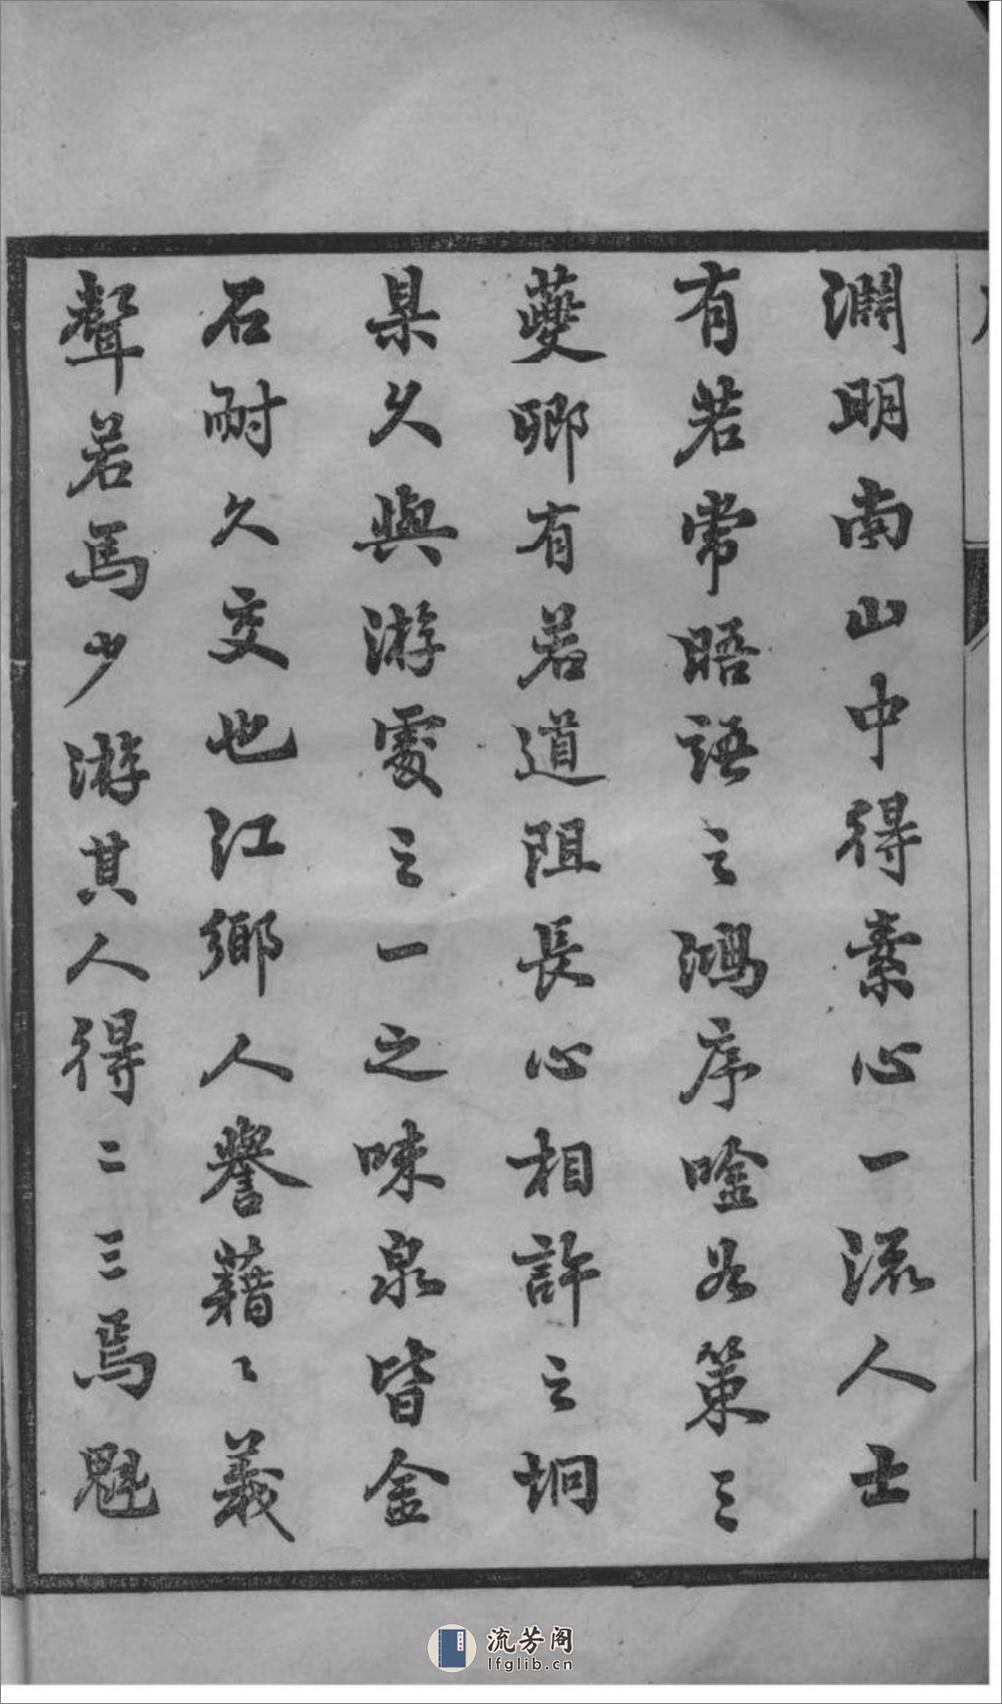 淵明南山中得素心一流人士
有若常晤語之鴻序唫如策三
夔卿有若道阻長心相許之坰
杲久與游處之一之味泉皆金
石耐久交也江鄉人譽藉〻義
聲若馬少游其人得二三焉魁
流芳阁
lfglib.cn